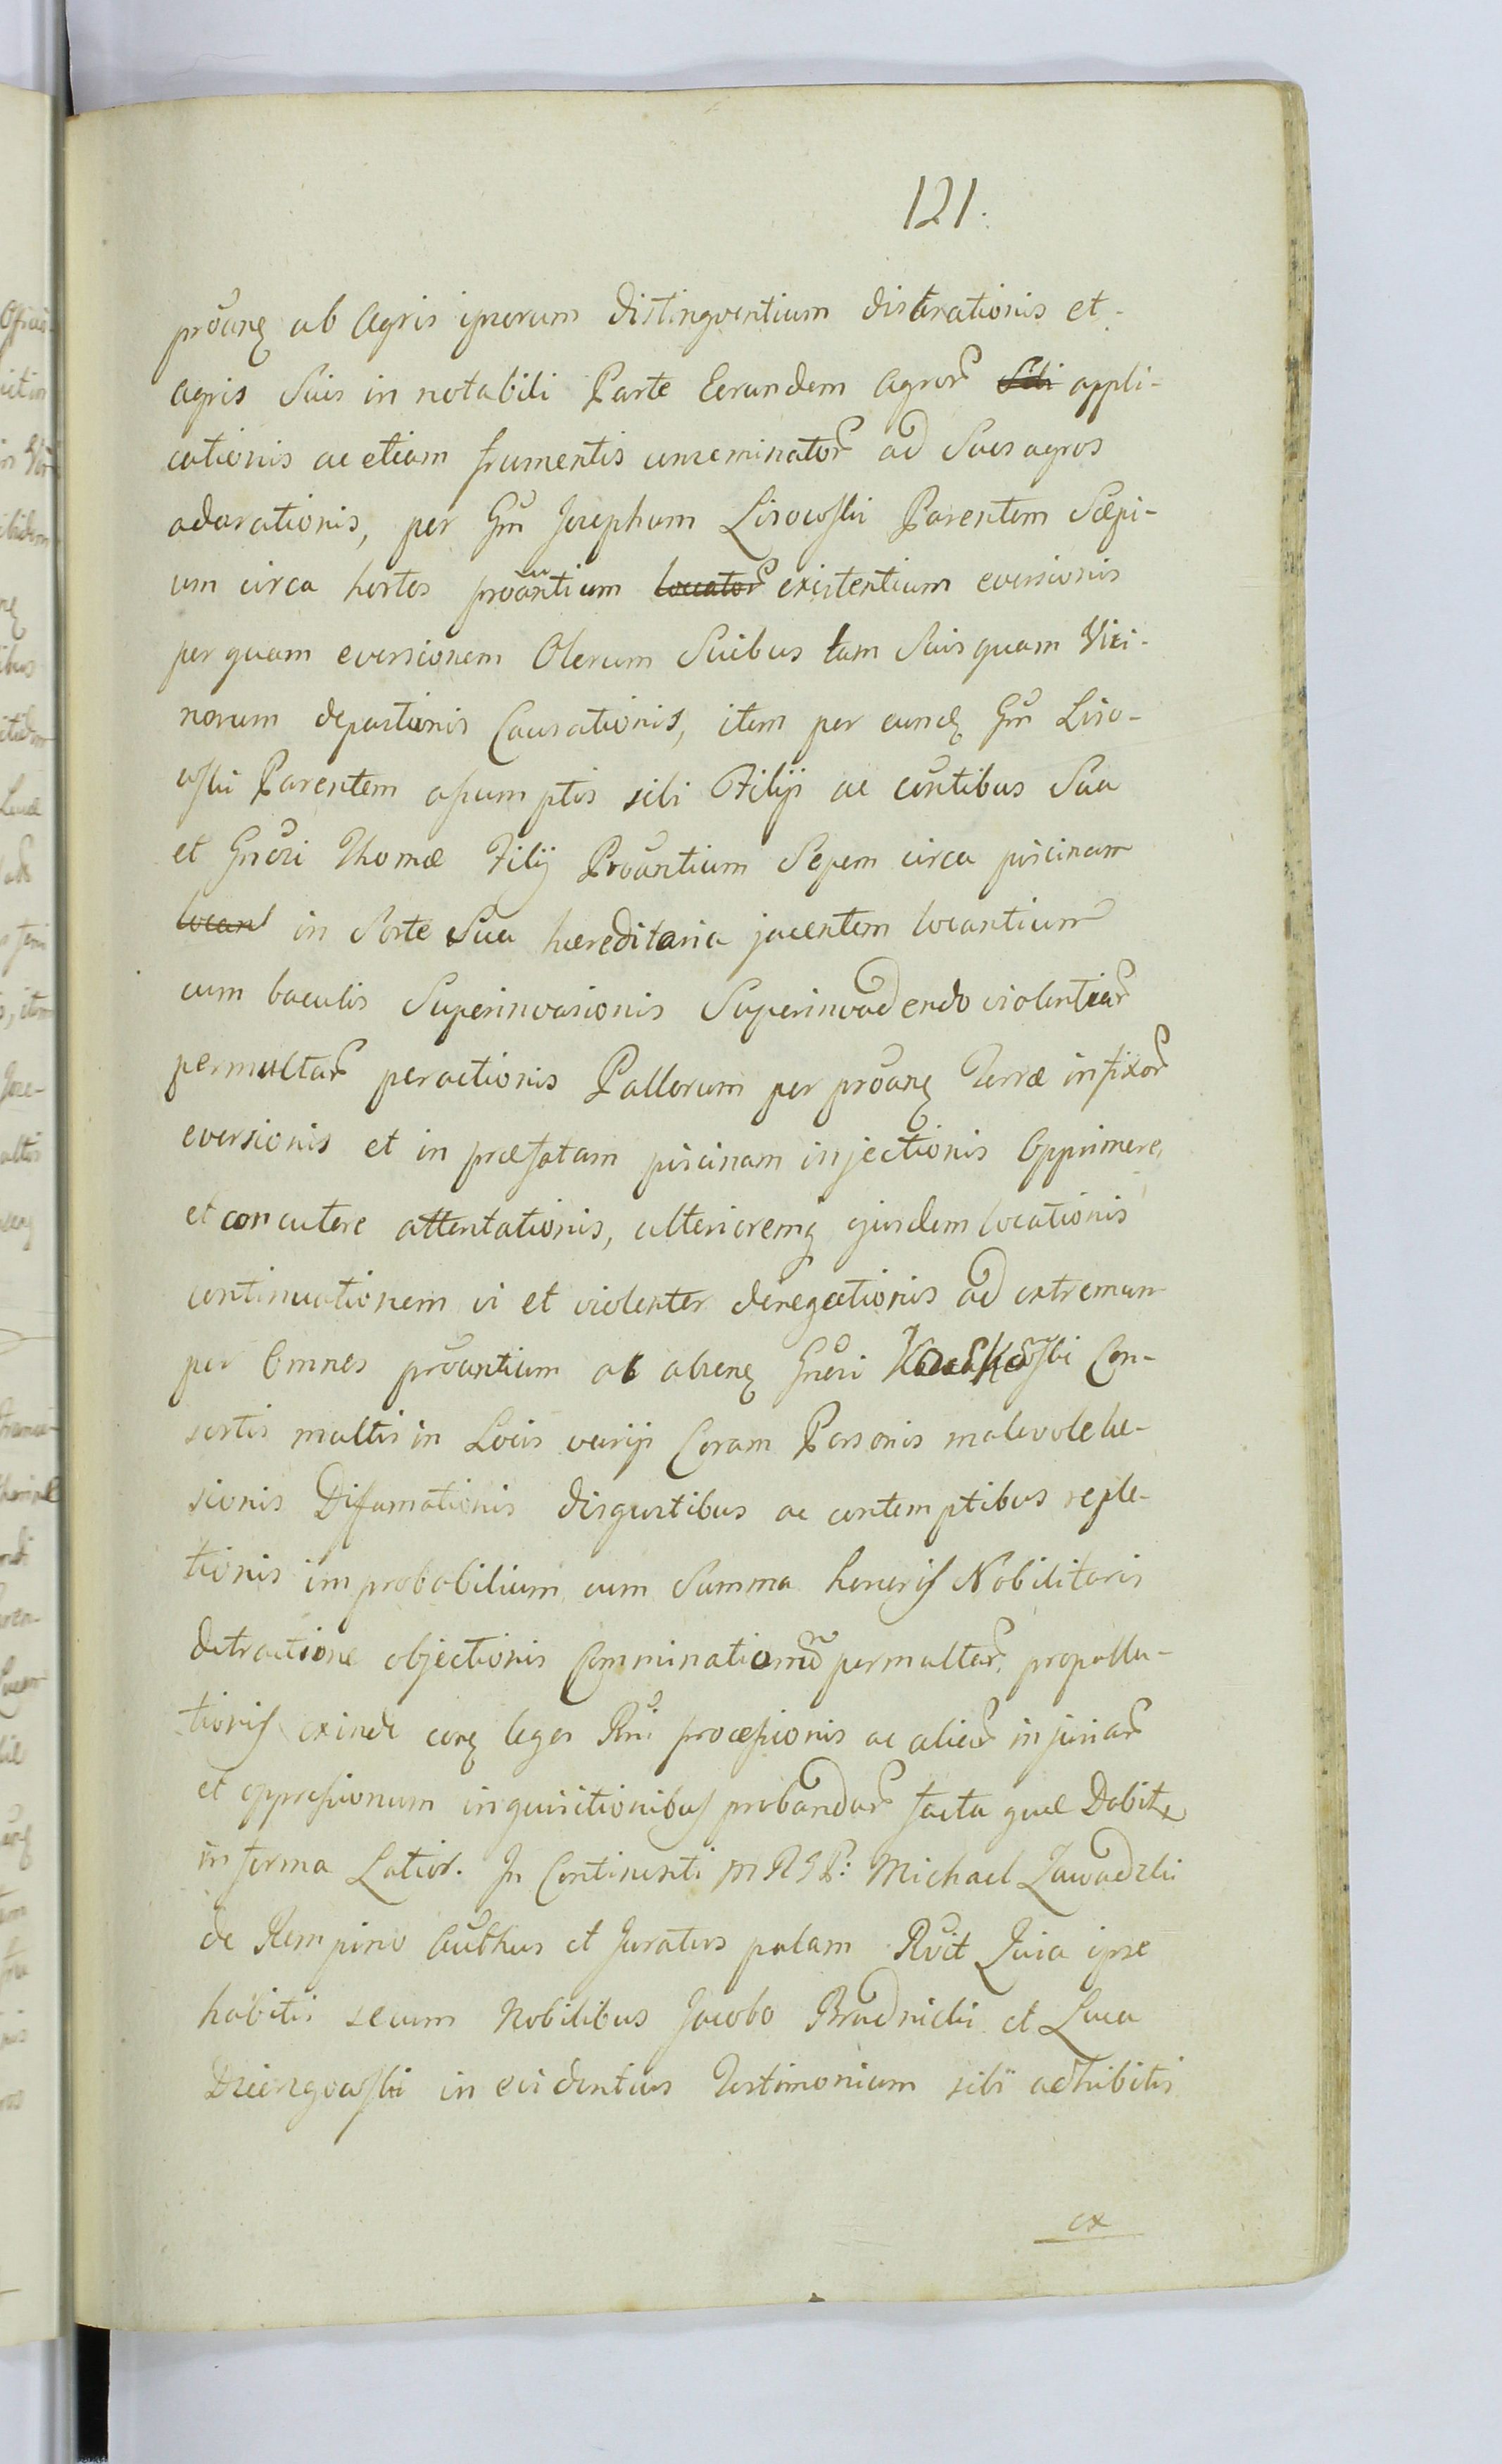 121.
prõanq ab Agris ipsorum distingventium disterationis et
agris Suis in notabili Parte Eorundem Agror Sibi appli-
cationis ac etiam frumentis unseminator ad Suos agros
adarationis, per Gm Josephum Lisowski Parentem Saepi-
um circa hortos prõantium locator existentium eversionis
per quam eversionem Olerum Suibus tam Suis quam Vici-
norum depastionis Causationis, item per eundq Gm Liso-
wski Parentem assumptis sibi Filijs ac contibus Sua
et Gnõri Thomae Filij Prõantium Sepem circa piscinam
locan in Sorte Sua haereditaria jacentem locantium
cum baculis Superinvasionis Superinvadendo violentiar
permultar peractionis Pallorum per prõanq Terrae infixor
eversionis et in praefatam piscinam injectionis Opprimere,
et concutere attentationis, ulterioremq ejusdem locationis
continuationem vi et violenter denegationis ad extremum
per Omnes prõantium ac absenq Gnõri Con-
sortis multis in Locis varijs Coram Personis malevole lae-
sionis Diffamationis disgustibus ac contemptibus reple-
tionis improbabilium cum Summa honoris Nobilitaris
detractione objectionis Comminationũ permultar, propalla-
tionis exinde conq leges Rni processionis ac aliar injuriar
et oppressionum inquisitionibus probandar facta quae Dabit
in forma Latior. In Continenti MRGP: Michael Zawadzki
de Rempino Authus et Juratus palam Rvit Quia ipse
habitis secum Nobilibus Jacobo Brudnicki et Luca
Dziengowski in evidentius Testimonium sibi adhibitis
ex